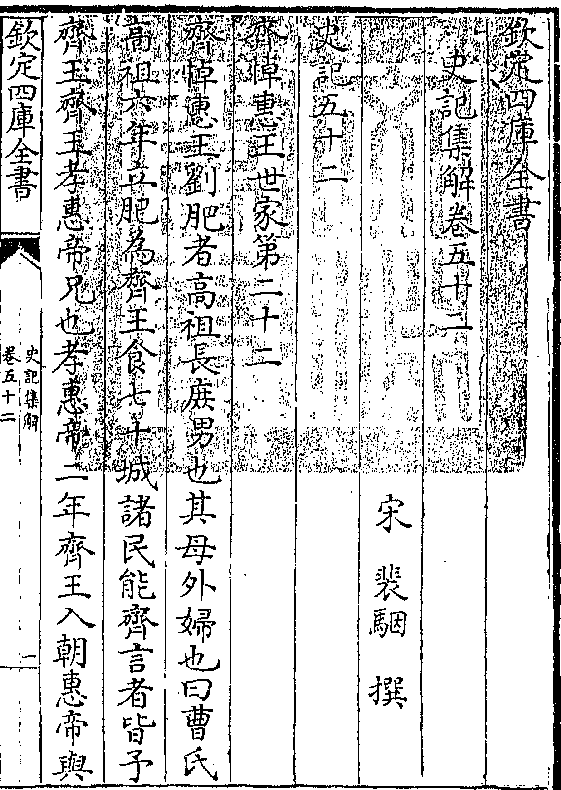 欽定四庫全書
史記集解卷五十二
宋 裴駰 撰
史記五十二
齊悼惠王世家第二十二
齊悼惠王劉肥者高祖長庶男也其母外婦也曰曹氏
高祖六年立肥為齊王食七十城諸民能齊言者皆予
齊王齊王孝惠帝兄也孝惠帝二年齊王入朝惠帝與
欽定四庫全書
史記集解
卷五十二
一